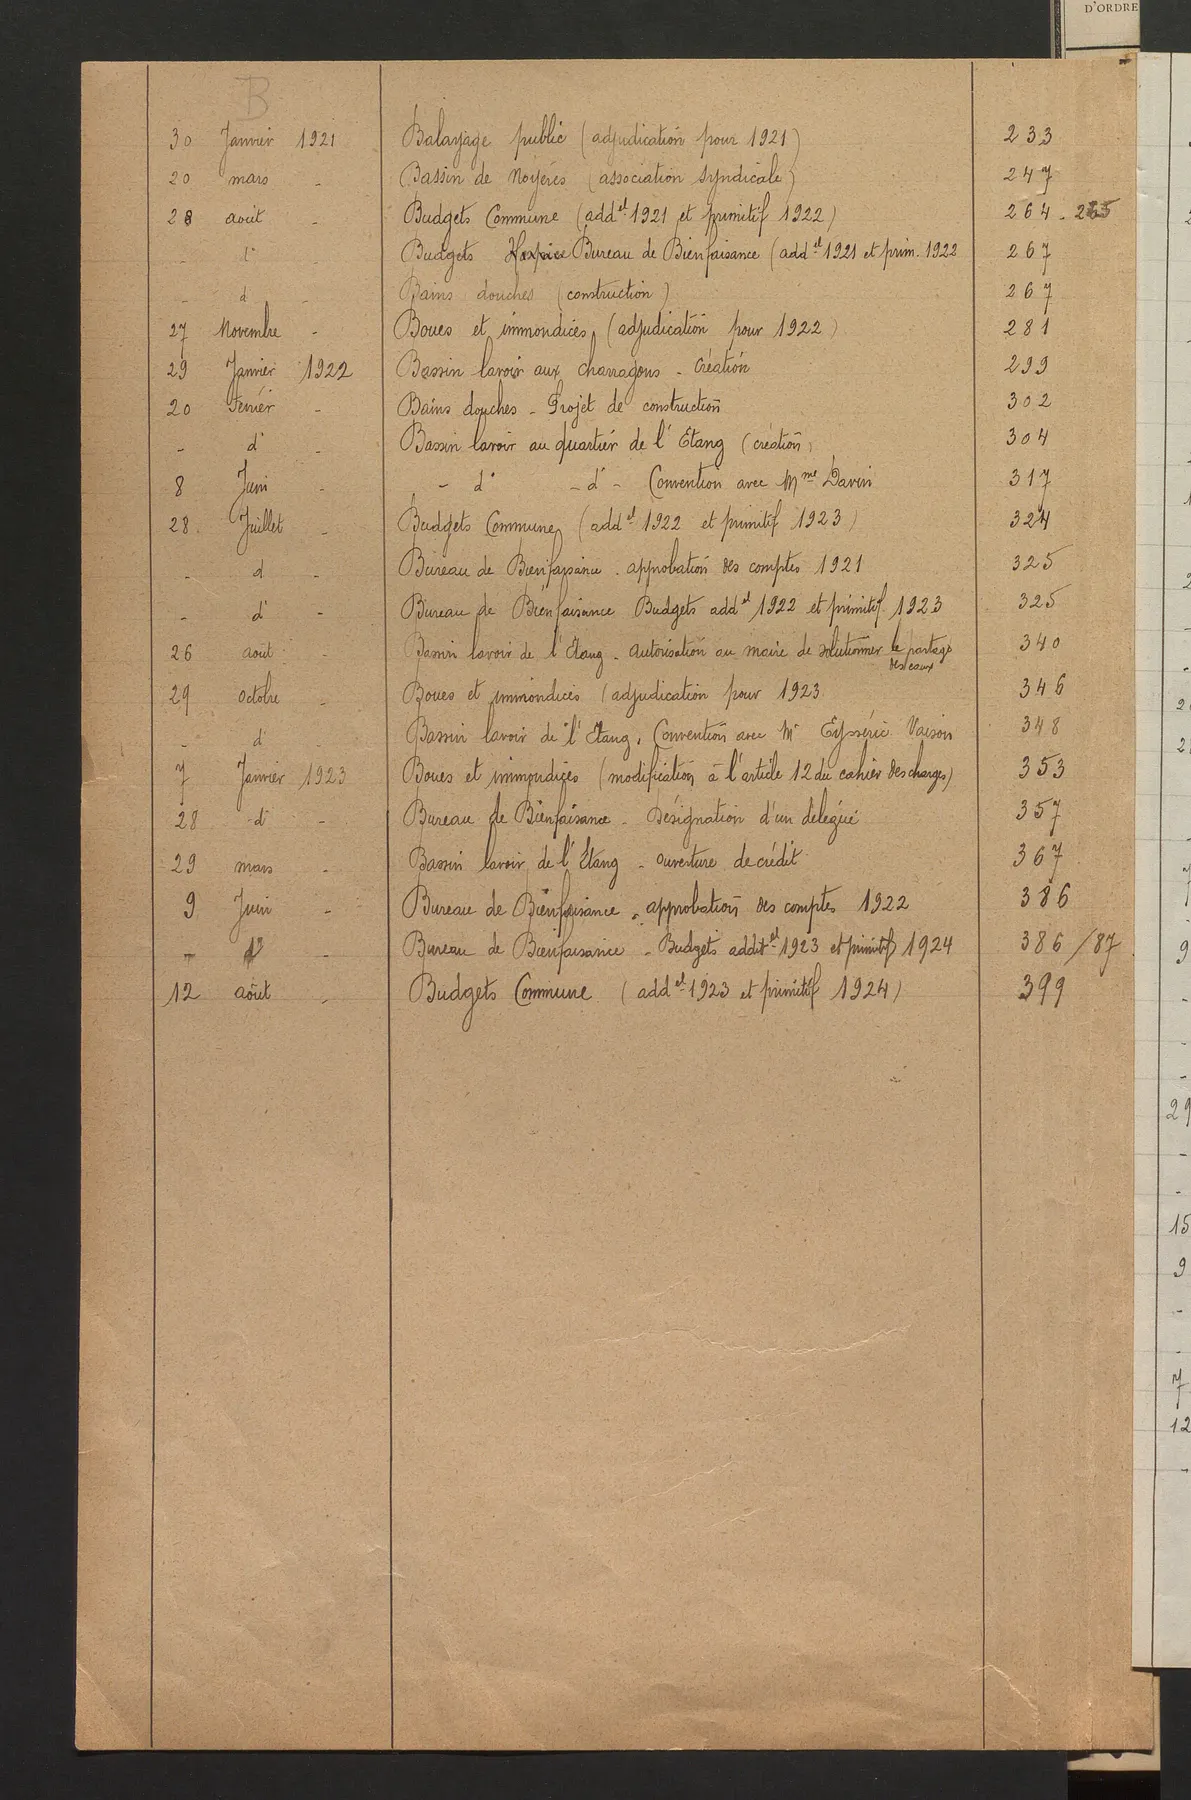 D'ORDRE
B
30 Janvier 1921 Balayage public (adjudication pour 1921) 233
20 mars - Bassin de Noyérés (association syndicale) 247
28 août - Budgets Commune (addel 1921 et primitif 1922) 264 - 265
- d° - Budgets Bureau de Bienfaisance (addel 1921 et prim. 1922 267
- d° - Bains douches (construction) 267
27 Novembre - Boues et immondices (adjudication pour 1922) 281
29 Janvier 1922 Bassin lavoir aux charragons - création 299
20 Février - Bains douches - Projet de construction 302
- d° - Bassin lavoir au quartier de l'Etang (création) 304
8 Juin - d° - d° - Convention avec Mme Davin 317
28 Juillet - Budgets Commune (addel 1922 et primitif 1923) 324
- d° - Bureau de Bienfaisance - approbation des comptes 1921 325
- d° - Bureau de Bienfaisance Budgets addel 1922 et primitif 1923 325
26 août - Bassin lavoir de l'Etang - autorisation au maire de solutionner le partage 340
des eaux
29 octobre - Boues et immondices (adjudication pour 1923 346
- d° - Bassin lavoir de l'Etang, Convention avec Mr Eysséric Vaison 348
7 Janvier 1923 Boues et immondices (modification à l'article 12 du cahier des charges) 353
28 d° - Bureau de Bienfaisance - Désignation d'un délégué 357
29 mars - Bassin lavoir de l'Etang - ouverture de crédit 367
9 Juin - Bureau de Bienfaisance - approbation des comptes 1922 386
- d° - Bureau de Bienfaisance - Budgets additel 1923 et primitif 1924 386/87
12 août - Budgets Commune (addel 1923 et primitif 1924) 399
29
15
9
7
12